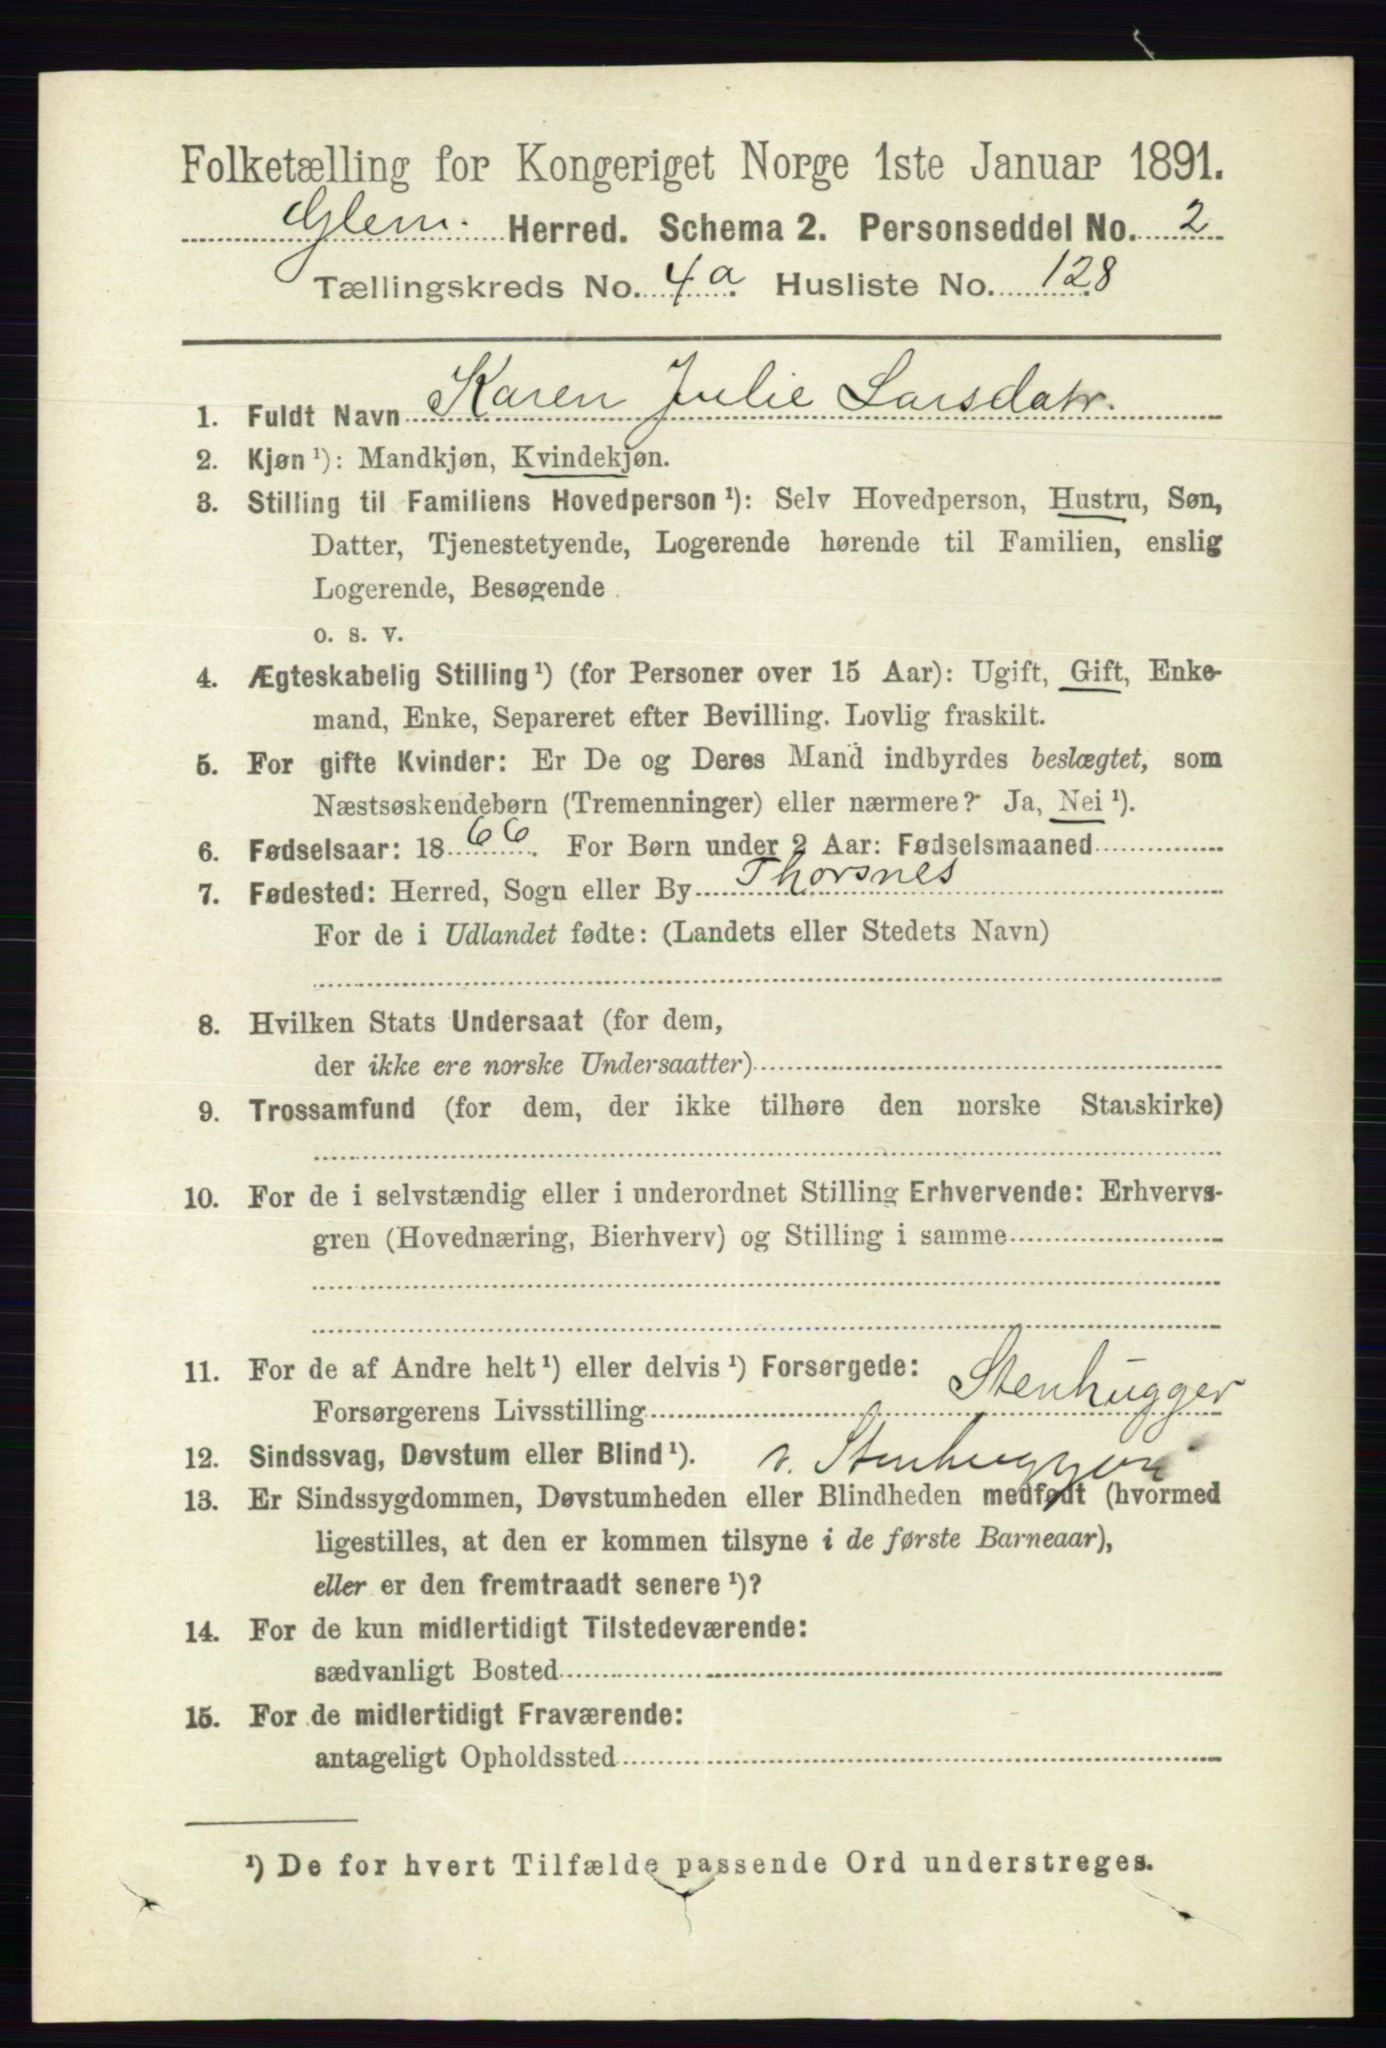 Folketælling for Kongeriget Norge 1ste Januar 1891.
Glem. Herred. Schema 2. Personseddel No. 2
Tællingskreds No. 4a. Husliste No. 128
1. Fuldt Navn Karen Julie Larsdatr.
2. Kjøn ¹): Mandkjøn, Kvindekjøn.
3. Stilling til Familiens Hovedperson ¹): Selv Hovedperson, Hustru, Søn,
Datter, Tjenestetyende, Logerende hørende til Familien, enslig
Logerende, Besøgende
o. s. v.
4. Ægteskabelig Stilling ¹) (for Personer over 15 Aar): Ugift, Gift, Enke-
mand, Enke, Separeret efter Bevilling. Lovlig fraskilt.
5. For gifte Kvinder: Er De og Deres Mand indbyrdes beslægtet, som
Næstsøskendebørn (Tremenninger) eller nærmere? Ja, Nei ¹).
6. Fødselsaar: 1866. For Børn under 2 Aar: Fødselsmaaned
7. Fødested: Herred, Sogn eller By Thorsnes
For de i Udlandet fødte: (Landets eller Stedets Navn)
8. Hvilken Stats Undersaat (for dem,
der ikke ere norske Undersaatter)
9. Trossamfund (for dem, der ikke tilhøre den norske Statskirke)
10. For de i selvstændig eller i underordnet Stilling Erhvervende: Erhvervs-
gren (Hovednæring, Bierhverv) og Stilling i samme
11. For de af Andre helt ¹) eller delvis ¹) Forsørgede:
Forsørgerens Livsstilling Stenhugger
12. Sindssvag, Døvstum eller Blind ¹). v. Stenhuggeri
13. Er Sindssygdommen, Døvstumheden eller Blindheden medfødt (hvormed
ligestilles, at den er kommen tilsyne i de første Barneaar),
eller er den fremtraadt senere ¹)?
14. For de kun midlertidigt Tilstedeværende:
sædvanligt Bosted
15. For de midlertidigt Fraværende:
antageligt Opholdssted
¹) De for hvert Tilfælde passende Ord understreges.